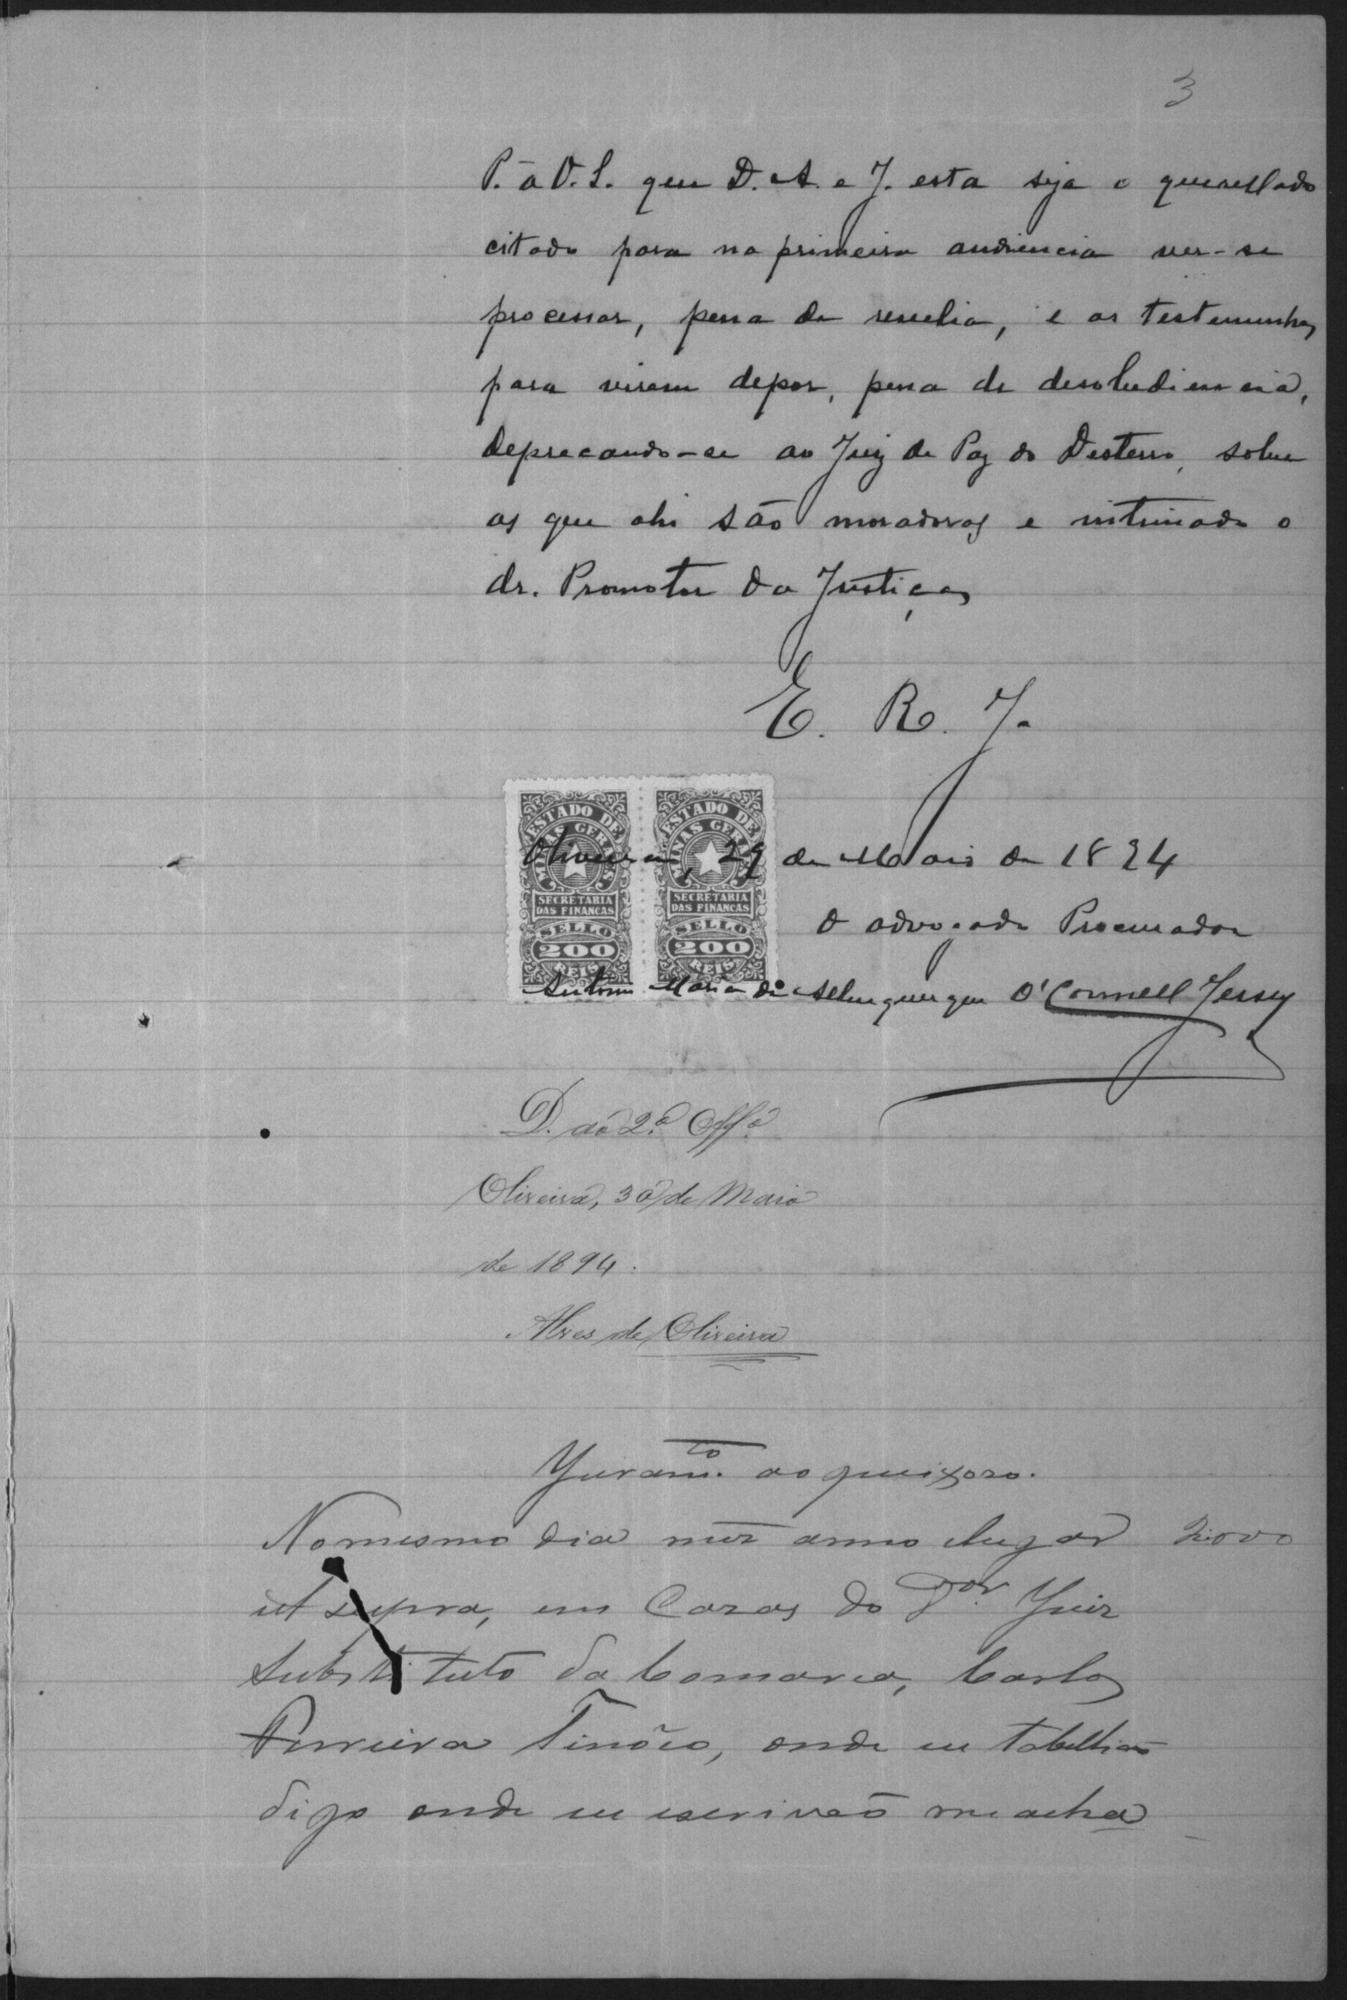 3
P. a V. S. que D. A. e J. esta seja o querellado
citado para na primeira audiencia ver-se
processar, pena de revelia, e as testemunhas
para virem depor, pena de desobediencia,
deprecando-se ao Juiz de Paz do Desterro, sobre
as que ahi são moradoras e intimado o
dr. Promotor da Justiça
E. R. J.
ESTADO DE MINAS GERAES
SECRETARIA DAS FINANCAS
SELLO 200 REIS
ESTADO DE MINAS GERAES
SECRETARIA DAS FINANCAS
SELLO 200 REIS
Oliveira, 29 de Maio de 1894
O advogado Procurador
Antonio Maria de Albuquerque O'Connell Jersey
D. ao 2º Offº
Oliveira, 30 de Maio
de 1894.
Alves de Oliveira
Juramto. ao queixozo.
No mesmo dia mez anno e lugar
ut supra, em Cazas do Dor. Juiz
Substituto da Comarca, Carlos
Ferreira Tinôco, onde eu tabellião
digo onde eu escrivão me acha